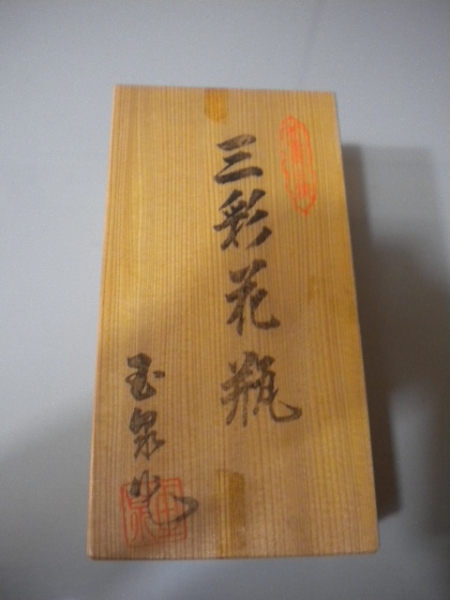 三彩花瓶
玉泉作